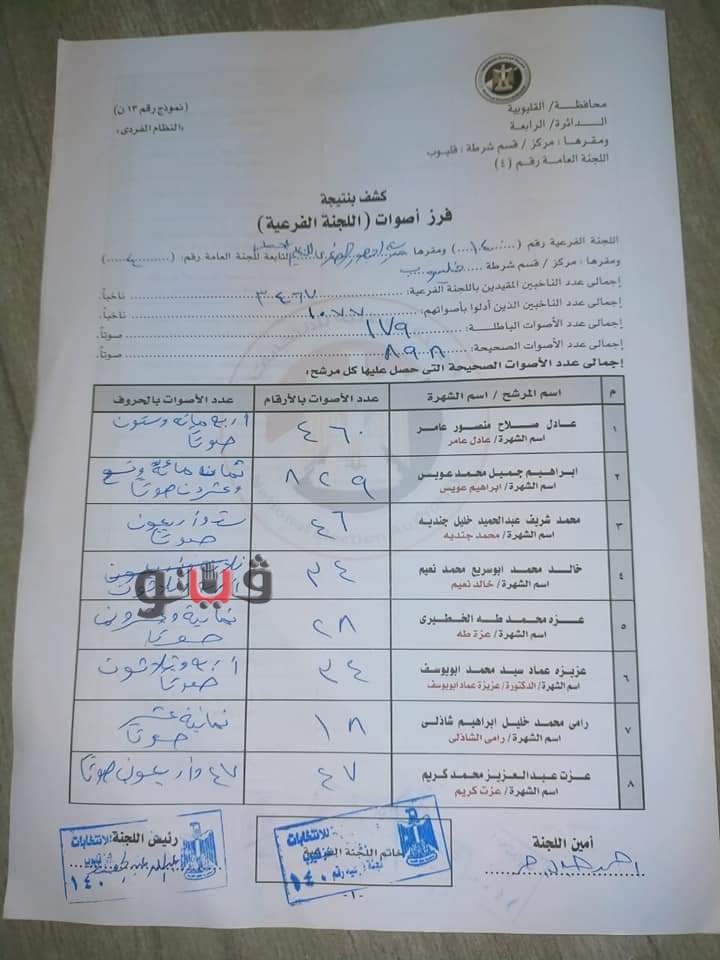 محافظة/ القليوبية
الدائرة/ الرابعة
ومقرها: مركز / قسم شرطة: قليوب
اللجنة العامة رقم (٤)
(نموذج رقم ١٣ ن)
«النظام الفردى»
كشف بنتيجة
فرز أصوات (اللجنة الفرعية)
اللجنة الفرعية رقم (١٤٠) ومقرها التابعة للجنة العامة رقم: (٤)
ومقرها: مركز / قسم شرطة قليوب
إجمالى عدد الناخبين المقيدين باللجنة الفرعية: ٣٤٦٧ ناخباً.
إجمالى عدد الناخبين الذين أدلوا بأصواتهم: ١٠٧٧ ناخباً.
إجمالى عدد الأصوات الباطلة: ١٧٩ صوتاً.
إجمالى عدد الأصوات الصحيحة: ٨٩٨ صوتاً.
إجمالى عدد الأصوات الصحيحة التى حصل عليها كل مرشح:
م اسم المرشح / اسم الشهرة عدد الأصوات بالأرقام عدد الأصوات بالحروف
١ عادل صلاح منصور عامر ٤٦٠ أربعمائه وستون
اسم الشهرة/ عادل عامر صوتاً
٢ ابراهيم جميل محمد عويس ٨٢٩ ثمانمائة وتسع
اسم الشهرة/ ابراهيم عويس وعشرون صوتاً
٣ محمد شريف عبدالحميد خليل جنديه ٤٦ ست وأربعون
اسم الشهرة/ محمد جنديه صوتاً
٤ خالد محمد ابوسريع محمد نعيم ٣٤
اسم الشهرة/ خالد نعيم
ڤيتو
٥ عزه محمد طه الخطيرى ٢٨ ثمانية وعشرون
اسم الشهرة/ عزة طه صوتاً
٦ عزيزه عماد سيد محمد ابويوسف ٣٤ أربع وثلاثون
اسم الشهرة/ الدكتورة/ عزيزة عماد ابويوسف صوتاً
٧ رامى محمد خليل ابراهيم شاذلى ١٨ ثمانية عشر
اسم الشهرة/ رامى الشاذلى صوتاً
٨ عزت عبدالعزيز محمد كريم ٤٧ ٤٧ وأربعون صوتاً
اسم الشهرة/ عزت كريم
أمين اللجنة
خاتم اللجنة الفرعية
رئيس اللجنة
للانتخابات
١٤٠
للانتخابات
١٤٠
-١-